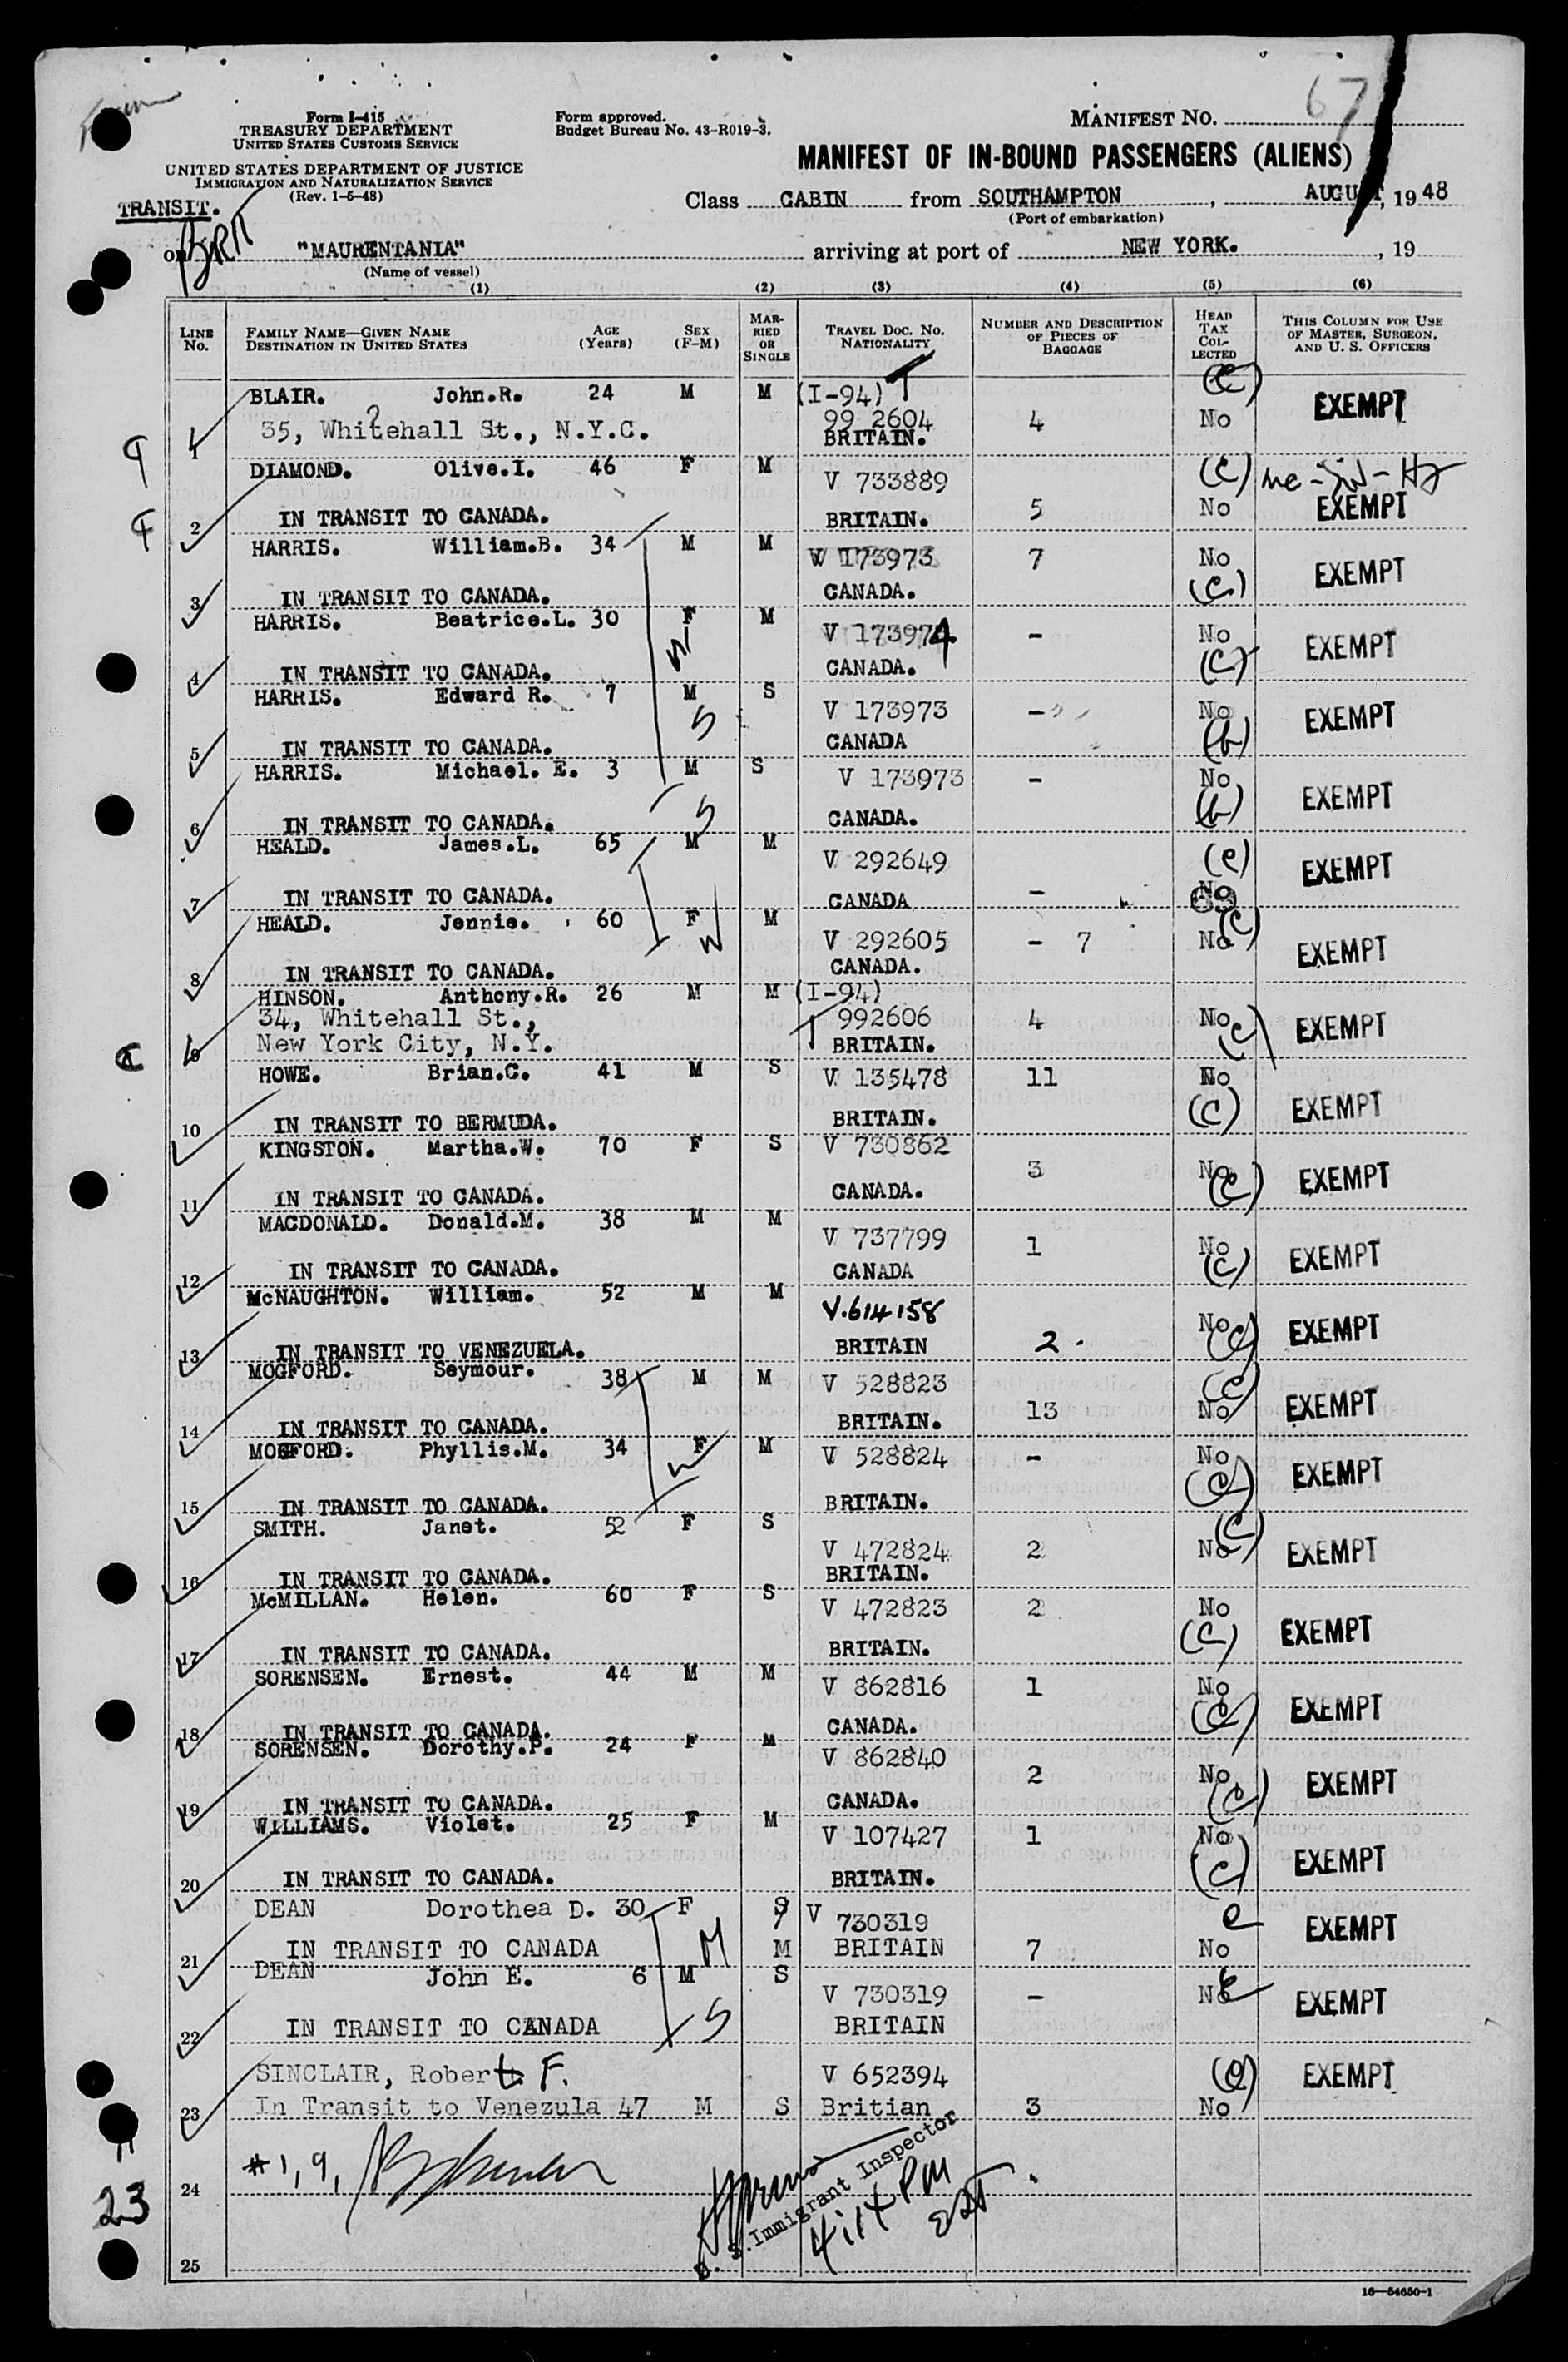 67
Form I-415
TREASURY DEPARTMENT
UNITED STATES CUSTOMS SERVICE
UNITED STATES DEPARTMENT OF JUSTICE
IMMIGRATION AND NATURALIZATION SERVICE
(Rev. 1-5-48)
TRANSIT.
Form approved.
Budget Bureau No. 43-R019-3.
MANIFEST NO.
MANIFEST OF IN-BOUND PASSENGERS (ALIENS)
Class CABIN from SOUTHAMPTON, AUGUST, 1948
(Port of embarkation)
on "MAURENTANIA" arriving at port of NEW YORK., 19
(Name of vessel)
(1) (2) (3) (4) (5) (6)
LINE No. FAMILY NAME—GIVEN NAME DESTINATION IN UNITED STATES AGE (Years) SEX (F-M) MARRIED OR SINGLE TRAVEL DOC. NO. NATIONALITY NUMBER AND DESCRIPTION OF PIECES OF BAGGAGE HEAD TAX COLLECTED THIS COLUMN FOR USE OF MASTER, SURGEON, AND U. S. OFFICERS
BLAIR. John.R. 24 M M (I-94) T (C) EXEMPT
1 35, Whitehall St., N.Y.C. 99 2604 BRITAIN. 4 No
DIAMOND. Olive.I. 46 F M V 733889 (C)
2 IN TRANSIT TO CANADA. BRITAIN. 5 No EXEMPT
HARRIS. William.B. 34 M M W 173973 7 No EXEMPT
3 IN TRANSIT TO CANADA. CANADA. (C)
HARRIS. Beatrice.L. 30 F M V 173974 - No EXEMPT
4 IN TRANSIT TO CANADA. W CANADA. (C)
HARRIS. Edward R. 7 M S V 173973 - No EXEMPT
5 IN TRANSIT TO CANADA. S CANADA (b)
HARRIS. Michael. E. 3 M S V 173973 - No EXEMPT
6 IN TRANSIT TO CANADA. S CANADA. (b)
HEALD. James.L. 65 M M V 292649 (e) EXEMPT
7 IN TRANSIT TO CANADA. CANADA - No
HEALD. Jennie. 60 F M V 292605 - 7 No (C) EXEMPT
8 IN TRANSIT TO CANADA. W CANADA.
HINSON. Anthony.R. 26 M M (I-94)
34, Whitehall St., T 992606 4 No EXEMPT
9 New York City, N.Y. BRITAIN. (C)
HOWE. Brian.C. 41 M S V 135478 11 No EXEMPT
10 IN TRANSIT TO BERMUDA. BRITAIN. (C)
KINGSTON. Martha.W. 70 F S V 730862 3 No EXEMPT
11 IN TRANSIT TO CANADA. CANADA. (C)
MACDONALD. Donald.M. 38 M M V 737799 1 No EXEMPT
12 IN TRANSIT TO CANADA. CANADA (C)
McNAUGHTON. William. 52 M M V.614158 No EXEMPT
13 IN TRANSIT TO VENEZUELA. BRITAIN 2. (C)
MOGFORD. Seymour. 38 M M V 528823 (C)
14 IN TRANSIT TO CANADA. BRITAIN. 13 No EXEMPT
MOGFORD. Phyllis.M. 34 F M V 528824 - No EXEMPT
15 IN TRANSIT TO CANADA. W BRITAIN. (C)
SMITH. Janet. 52 F S V 472824 2 No (C) EXEMPT
16 IN TRANSIT TO CANADA. BRITAIN.
McMILLAN. Helen. 60 F S V 472823 2 No EXEMPT
17 IN TRANSIT TO CANADA. BRITAIN. (C)
SORENSEN. Ernest. 44 M M V 862816 1 No EXEMPT
18 IN TRANSIT TO CANADA. CANADA. (C)
SORENSEN. Dorothy.P. 24 F M V 862840 2 No EXEMPT
19 IN TRANSIT TO CANADA. CANADA. (C)
WILLIAMS. Violet. 25 F M V 107427 1 No EXEMPT
20 IN TRANSIT TO CANADA. BRITAIN. (C)
DEAN Dorothea D. 30 F S V 730319 EXEMPT
21 IN TRANSIT TO CANADA M M BRITAIN 7 No
DEAN John E. 6 M S V 730319 - No EXEMPT
22 IN TRANSIT TO CANADA S BRITAIN
SINCLAIR, Robert F. V 652394 EXEMPT
23 In Transit to Venezula 47 M S Britian 3 No
24 #1, 9,
U. S. Immigrant Inspector
4:14 PM
EST
23
25
16—54650-1